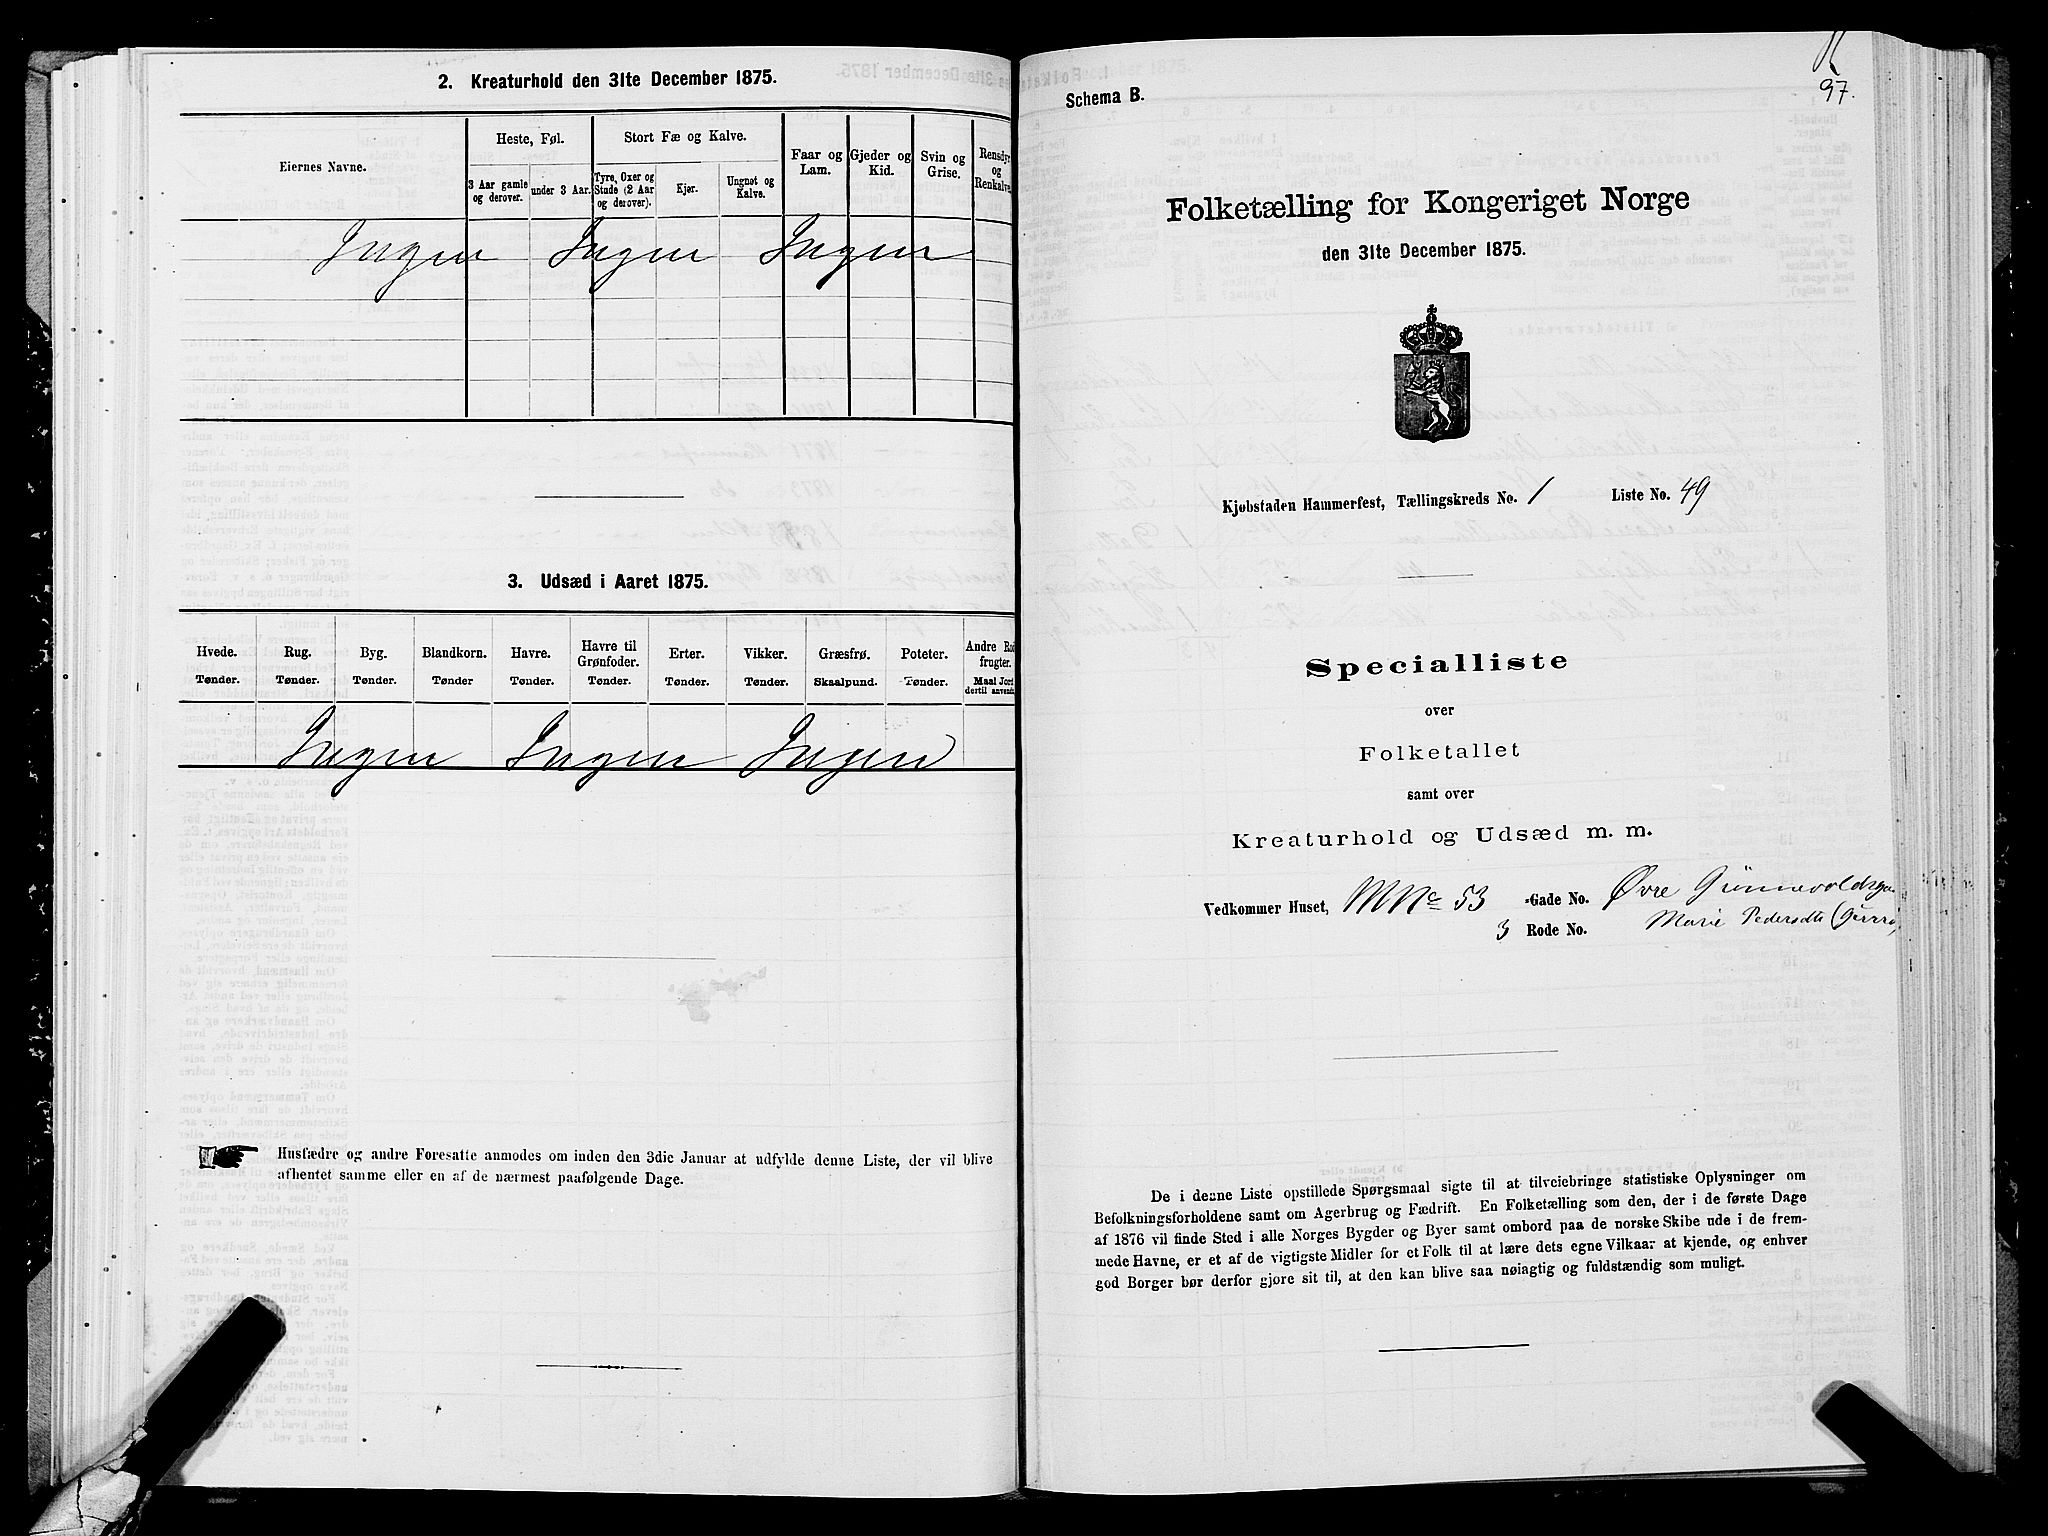 2. Kreaturhold den 31te December 1875.
Eiernes Navne.
Heste, Føl.
Stort Fæ og Kalve.
Faar og
Lam.
Gjeder og
Kid.
Svin og
Grise.
Rensdyr
og
Renkalve.
3 Aar gamle
og derover.
under 3 Aar.
Tyre, Oxer og
Stude (2 Aar
og derover).
Kjør.
Ungnøt og
Kalve.
Ingen Ingen Ingen
3. Udsæd i Aaret 1875.
Hvede.
Tønder.
Rug.
Tønder.
Byg.
Tønder.
Blandkorn.
Tønder
Havre.
Tønder.
Havre til
Grønfoder.
Tønder.
Erter.
Tønder.
Vikker.
Tønder.
Græsfrø.
Skaalpund.
Poteter.
Tønder.
Andre Rod
frugter.
Maal Jord
dertil anvendt
Ingen Ingen Ingen
Husfædre og andre Foresatte anmodes om inden den 3die Januar at udfylde denne Liste, der vil blive
afhentet samme eller en af de nærmest paafølgende Dage.
97.
Schema B.
Folketælling for Kongeriget Norge
den 31te December 1875.
Kjøbstaden Hammerfest, Tællingskreds No. 1 Liste No. 49
Specialliste
over
Folketallet
samt over
Kreaturhold og Udsæd m. m.
Vedkommer Huset, MNo 53 -Gade No. Øvre Grünnevoldsga
3 Rode No. Marie Pedersdtr
De i denne Liste opstillede Spørgsmaal sigte til at tilveiebringe statistiske Oplysninger om
Befolkningsforholdene samt om Agerbrug og Fædrift. En Folketælling som den, der i de første Dage
af 1876 vil finde Sted i alle Norges Bygder og Byer samt ombord paa de norske Skibe ude i de frem-
mede Havne, er et af de vigtigste Midler for et Folk til at lære dets egne Vilkaar at kjende, og enhver
god Borger bør derfor gjøre sit til, at den kan blive saa nøiagtig og fuldstændig som muligt.